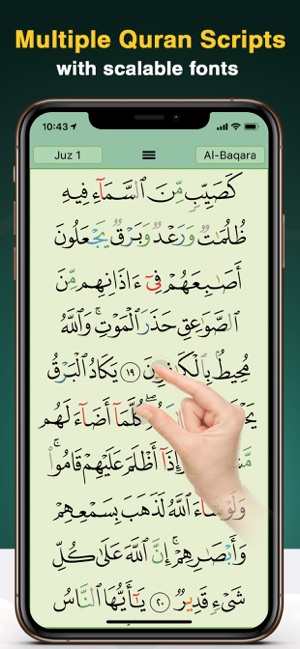 Multiple Quran Scripts
with scalable fonts
10:43
Juz 1
Al-Baqara
كَصَيِّبٍ مِّنَ ٱلسَّمَآءِ فِيهِ
ظُلُمَٰتٌ وَرَعْدٌ وَبَرْقٌ يَجْعَلُونَ
أَصَٰبِعَهُمْ فِىٓ ءَاذَانِهِم مِّنَ
ٱلصَّوَٰعِقِ حَذَرَ ٱلْمَوْتِ ۚ وَٱللَّهُ
مُحِيطٌۢ بِٱلْكَٰفِرِينَ ١٩ يَكَادُ ٱلْبَرْقُ
كُلَّمَآ أَضَآءَ لَهُم
إِذَآ أَظْلَمَ عَلَيْهِمْ قَامُوا۟ ۚ
وَلَوْ شَآءَ ٱللَّهُ لَذَهَبَ بِسَمْعِهِمْ
وَأَبْصَٰرِهِمْ ۚ إِنَّ ٱللَّهَ عَلَىٰ كُلِّ
شَىْءٍ قَدِيرٌ ٢٠ يَٰٓأَيُّهَا ٱلنَّاسُ